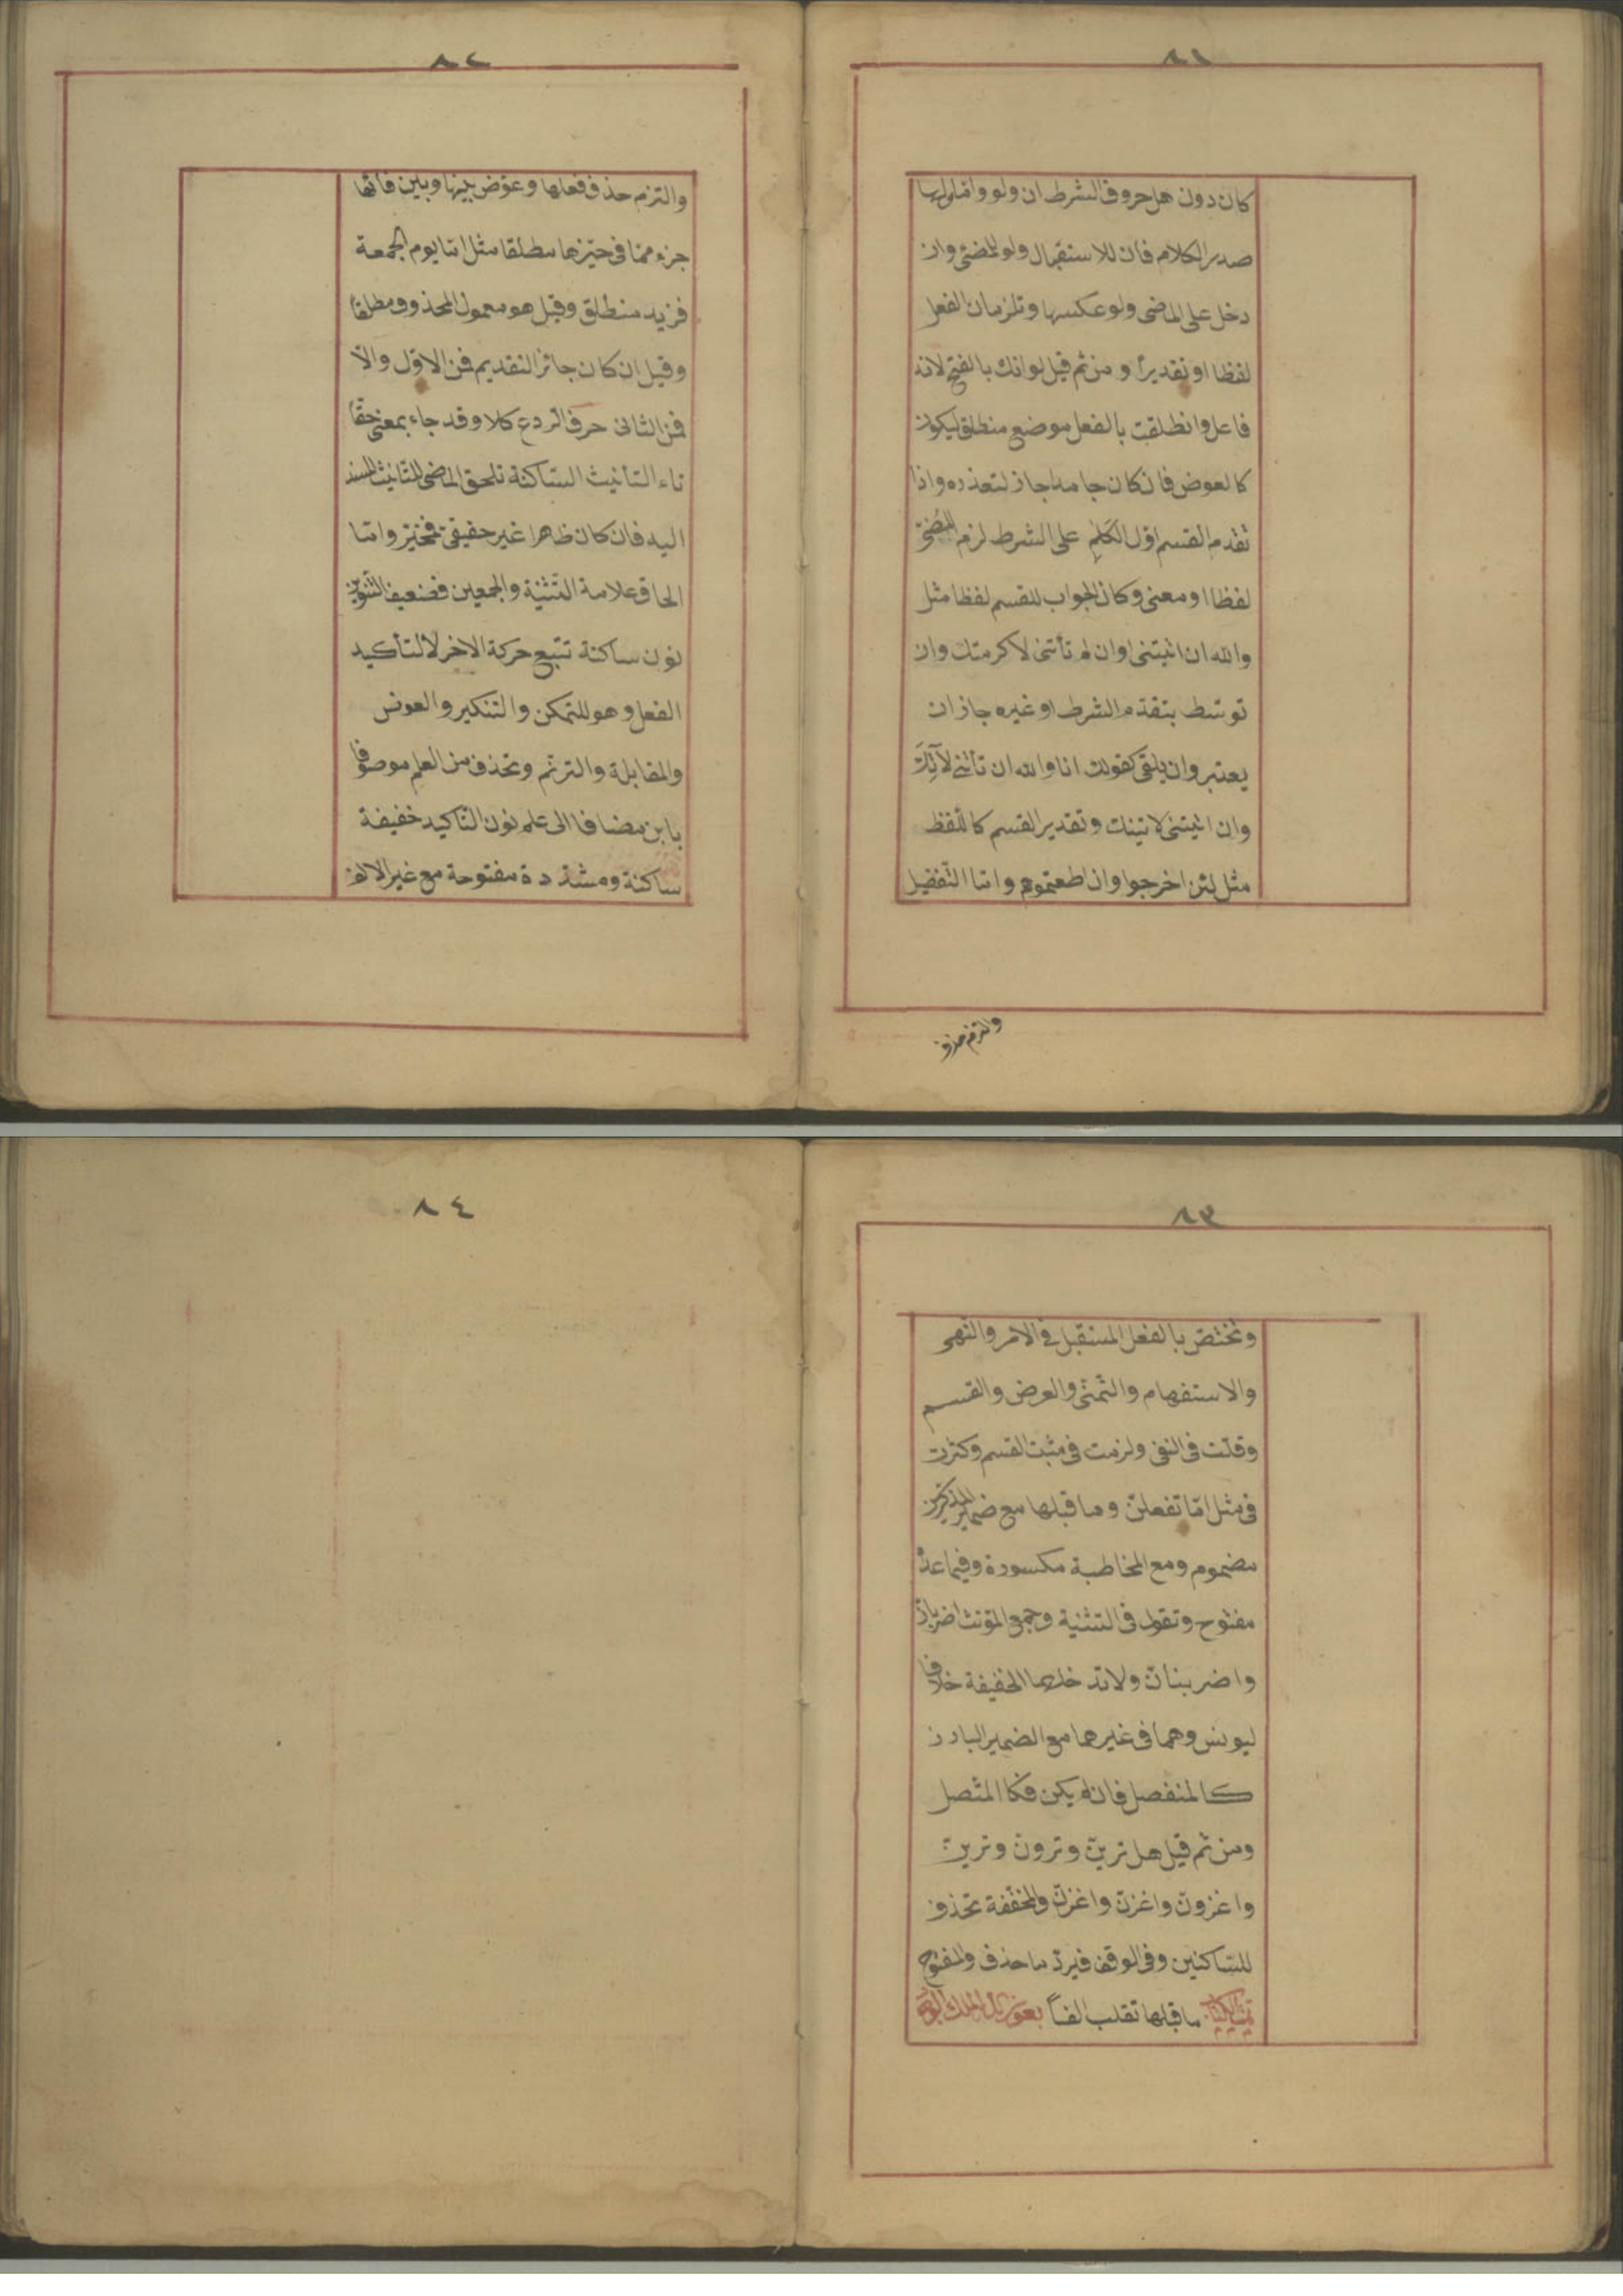 ٨١
كان دون هل حروف الشرط ان ولو واما لها
صدر الكلام فان للاستقبال ولو للمضى وان
دخل على الماضى ولو عكسها وتلزمان الفعل
لفظا او تقديرا ومن ثم قيل لو انك بالفتح لانه
فاعل وانطلقت بالفعل موضع منطلق ليكون
كالعوض فان كان جامدا جاز لتعذره واذا
تقدم القسم اول الكلام على الشرط لزم المضى
لفظا او معنى وكان الجواب للقسم لفظا مثل
والله ان اتيتنى اوان لم تأتنى لاكرمتك وان
توسّط بتقدم الشرط او غيره جاز ان
يعتبر وان يلقى كقولك انا والله ان تأتنى لآتك
وان اتيتنى لاتينك وتقدير القسم كاللفظ
مثل لئن اخرجوا وان اطعتموهم واما التفضيل
والتزم حذف
٨٢
والتزم حذف فعلها وعوّض بينها وبين فائها
جزء ممّا فى حيّزها مطلقا مثل اما يوم الجمعة
فزيد منطلق وقيل هو معمول المحذوف مطلقا
وقيل ان كان جائز التقديم فمن الاوّل والاّ
فمن الثانى حرف الردع كلا وقد جاء بمعنى حقّا
تاء التأنيث السّاكنة تلحق الماضى للتانيث المسند
اليه فان كان ظاهرا غير حقيقى فمخيّر واما
الحاق علامة التّثنية والجمعين فضعيف التّنوين
نون ساكنة تتبع حركة الاخر لا لتأكيد
الفعل وهو للتمكن والتنكير والعوض
والمقابلة والترنّم وتحذف من العلم موصوفا
بابن مضافا الى علم نون التأكيد خفيفة
ساكنة ومشدّدة مفتوحة مع غير الالف
٨٣
وتختصّ بالفعل المستقبل فى الامر والنهى
والاستفهام والتّمنّى والعرض والقسم
وقلّت فى النفى ولزمت فى مثبت القسم وكثرت
فى مثل امّا تفعلنّ وما قبلها مع ضمير المذكرين
مضموم ومع المخاطبة مكسورة وفيما عداه
مفتوح وتقول فى التثنية وجمع المؤنث اضربانّ
واضربنانّ ولا تدخلهما الخفيفة خلافا
ليونس وهما فى غيرهما مع الضمير البارز
كالمنفصل فان لم يكن فكا المتّصل
ومن ثم قيل هل ترينّ وترونّ وترينّ
واغزونّ واغزنّ واغزنّ والمخفّفة تحذف
للسّاكنين وفى الوقف فيردّ ما حذف والمفتوح
تمت الكتاب ما قبلها تقلب الفاً بعون الملك الوهاب
٨٤